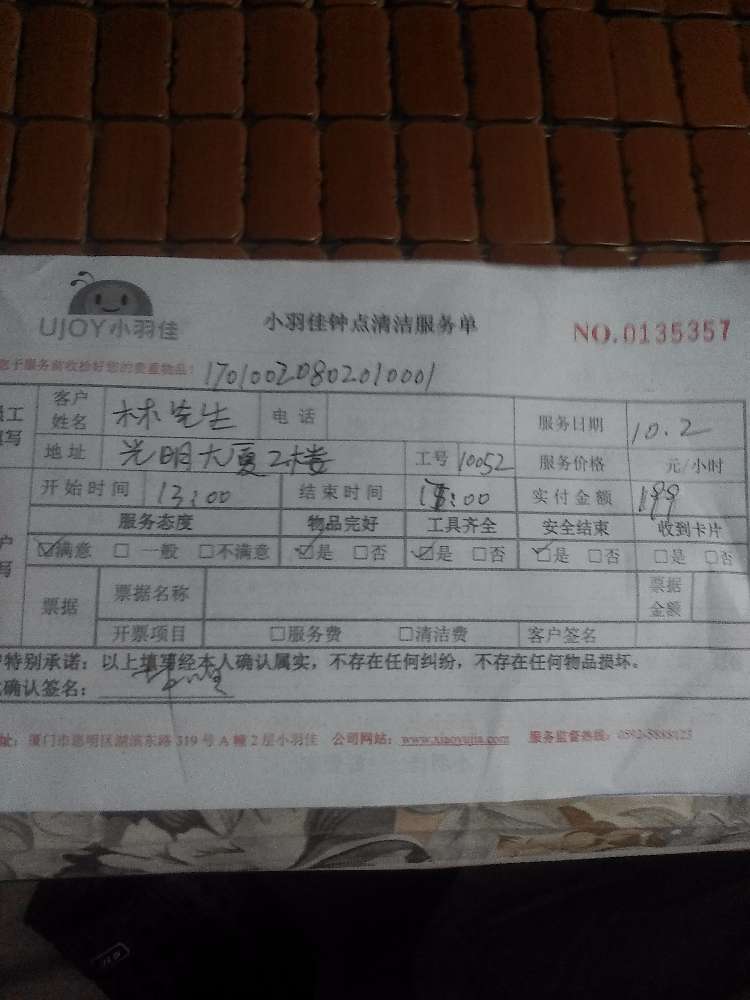 UJOY小羽佳
小羽佳钟点清洁服务单
NO.0135357
您于服务前收拾好您的贵重物品! 17010020802010001
员工 客户姓名 林先生 电话 服务日期 10.2
填写 地址 光明大厦2楼 工号 10052 服务价格 元/小时
开始时间 13:00 结束时间 18:00 实付金额 199
服务态度 物品完好 工具齐全 安全结束 收到卡片
☑满意 □一般 □不满意 ☑是 □否 ☑是 □否 ☑是 □否 □是 □否
票据 票据名称 票据金额
开票项目 □服务费 □清洁费 客户签名
特别承诺:以上填写经本人确认属实,不存在任何纠纷,不存在任何物品损坏。
确认签名:
址:厦门市思明区湖滨东路319号A幢2层小羽佳 公司网站:www.xiaoyujia.com 服务监督热线:0592-5888125